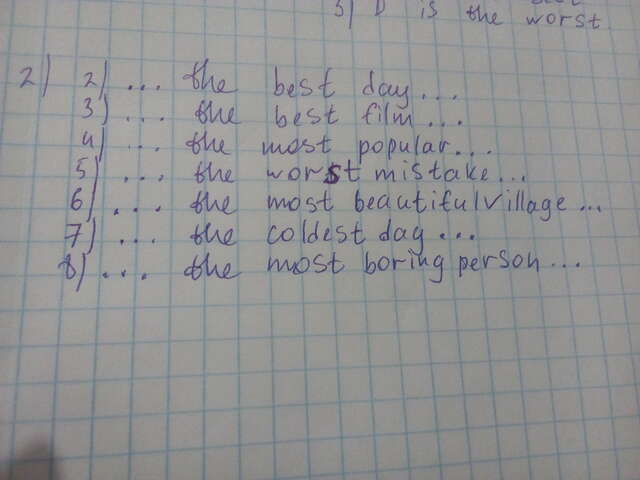 3) D is the worst
2) 2) ... the best day...
3) ... the best film ...
4) ... the most popular...
5) ... the worst mistake...
6) ... the most beautiful village ...
7) ... the coldest day ...
8) ... the most boring person ...